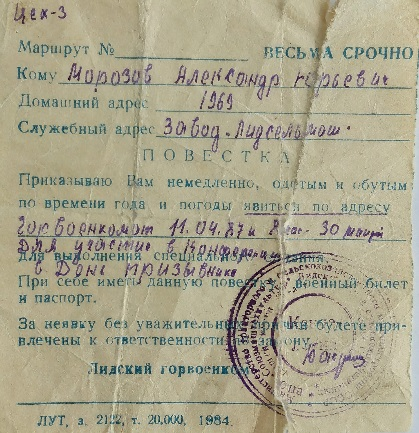 Цех-3
Маршрут № ВЕСЬМА СРОЧНО
Кому Морозов Александр Юрьевич
Домашний адрес 1969
Служебный адрес Завод "Лидсельмаш"
ПОВЕСТКА
Приказываю Вам немедленно, одетым и обутым
по времени года и погоды явиться по адресу
Горвоенкомат 11.04.87 к 8 час. 30 минут
для участие в конференции
для выполнения специального задания.
в День призывника
При себе иметь данную повестку, военный билет
и паспорт.
За неявку без уважительных причин будете при-
влечены к ответственности по закону.
Лидский горвоенком
ЛУТ, з. 2122, т. 20.000, 1984.